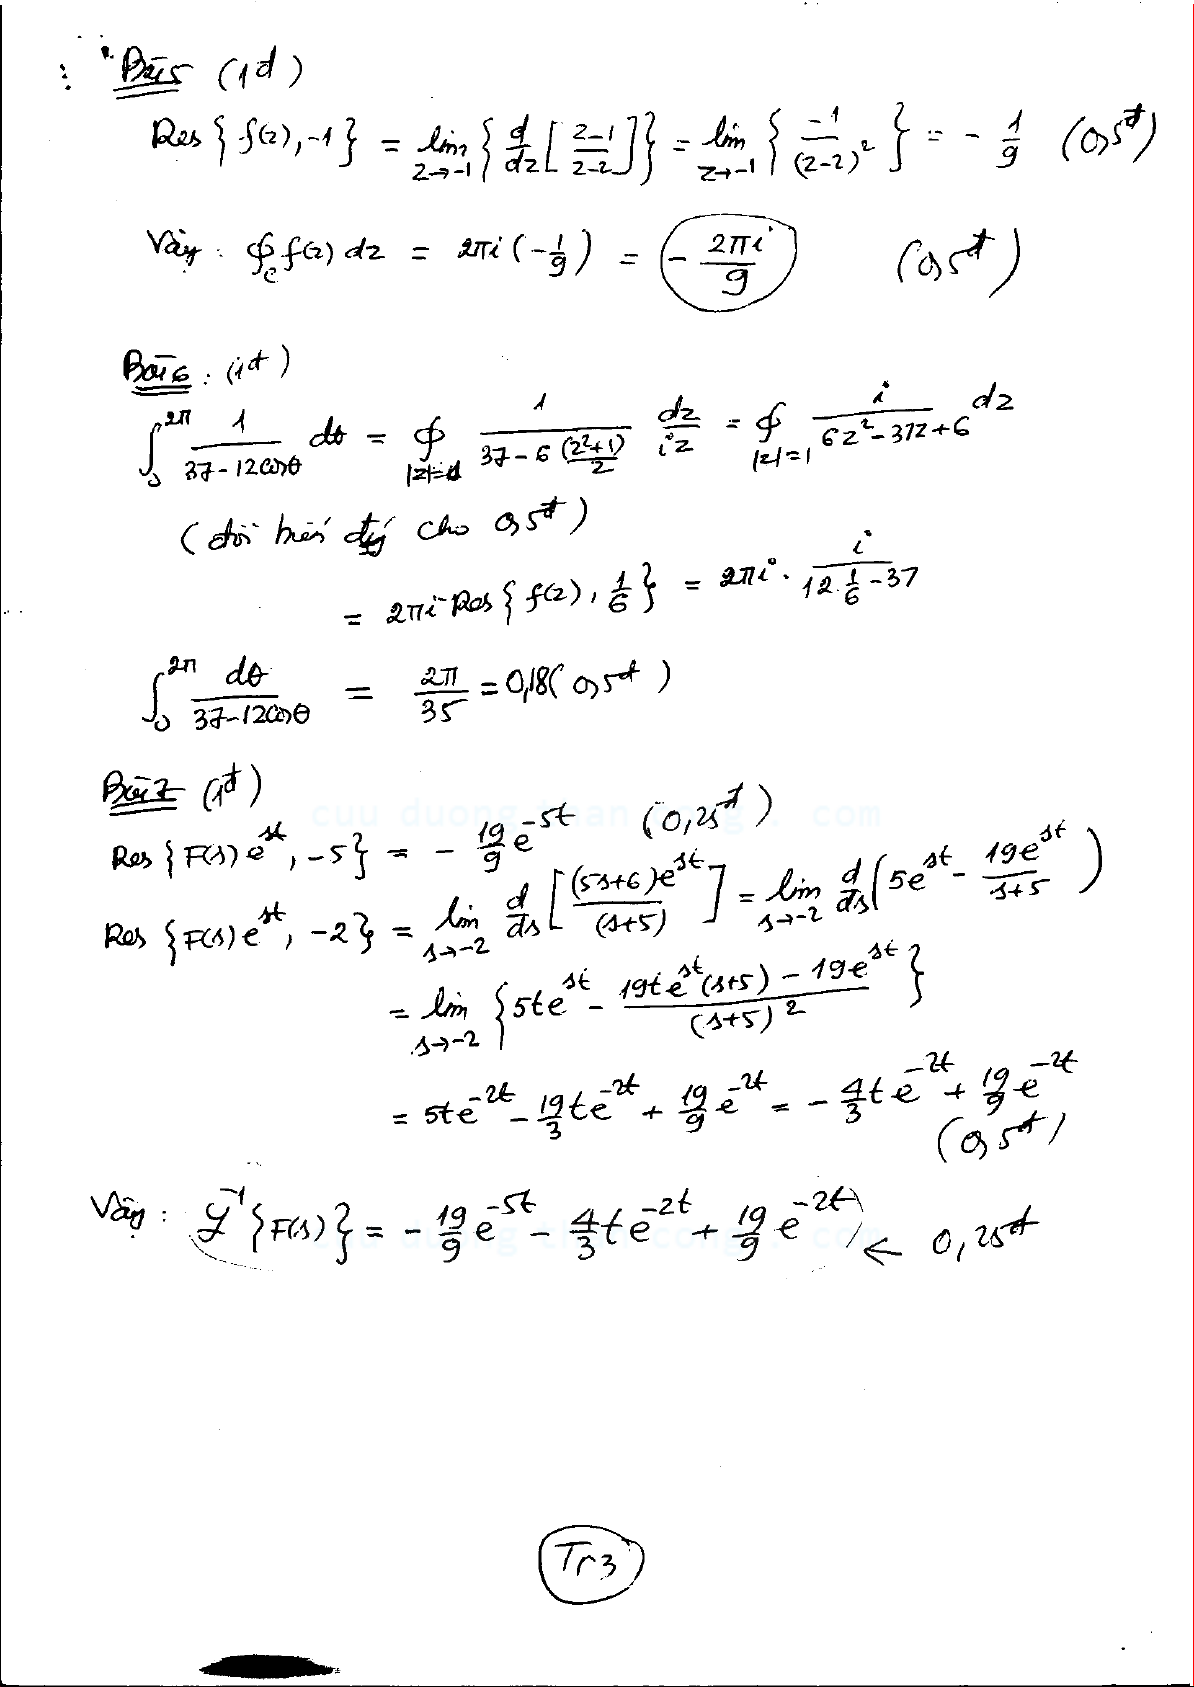 Bài 5 (1đ)
Res {f(z), -1} = lim_{z→-1} { d/dz [ (z-1)/(z-2) ] } = lim_{z→-1} { -1/(z-2)² } = - 1/9 (0,5đ)
Vậy: ∮_C f(z) dz = 2πi (-1/9) = - 2πi/9 (0,5đ)
Bài 6: (1đ)
∫_0^{2π} 1/(37-12cosθ) dθ = ∮_{|z|=1} 1/(37-6 (z²+1)/2) dz/(iz) = ∮_{|z|=1} i/(6z²-37z+6) dz
(đổi biến đúng cho 0,5đ)
= 2πi Res {f(z), 1/6} = 2πi · i/(12·1/6 - 37)
∫_0^{2π} dθ/(37-12cosθ) = 2π/35 = 0,18 (0,5đ)
Bài 7 (1đ)
Res {F(s)e^{st}, -5} = - 19/9 e^{-5t} (0,25đ)
Res {F(s)e^{st}, -2} = lim_{s→-2} d/ds [ (5s+6)e^{st}/(s+5) ] = lim_{s→-2} d/ds (5e^{st} - 19e^{st}/(s+5))
= lim_{s→-2} {5te^{st} - (19te^{st}(s+5) - 19e^{st})/(s+5)²}
= 5te^{-2t} - 19/3 te^{-2t} + 19/9 e^{-2t} = - 4/3 te^{-2t} + 19/9 e^{-2t}
(0,5đ)
Vậy: ℒ^{-1} {F(s)} = - 19/9 e^{-5t} - 4/3 te^{-2t} + 19/9 e^{-2t} ← 0,25đ
Tr3
cuu duong than cong . com
cuu duong than cong . com